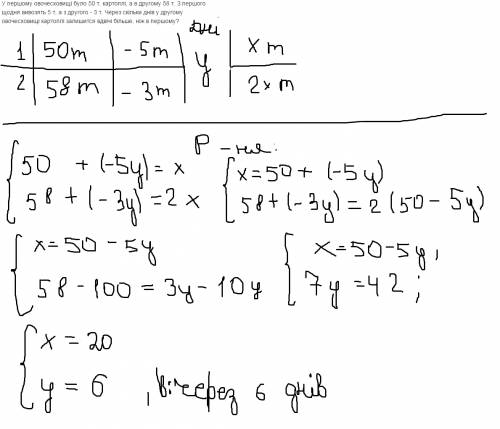 У першому овочесховищі було 50 т. картоплі, а в другому 58 т. З першого
щодня вивозять 5 т, а з другого - 3 т. Через скільки днів у другому
овочесховищі картоплі залишится вдвічі більше, ніж в першому?
дні
1 50т - 5т у х т
2 58т - 3т 2х т
Р - ння:
50 + (-5y) = x
58 + (-3y) = 2x
x = 50 + (-5y)
58 + (-3y) = 2(50 - 5y)
x = 50 - 5y
58 - 100 = 3y - 10y
x = 50 - 5y,
7y = 42;
x = 20
y = 6, в: через 6 днів